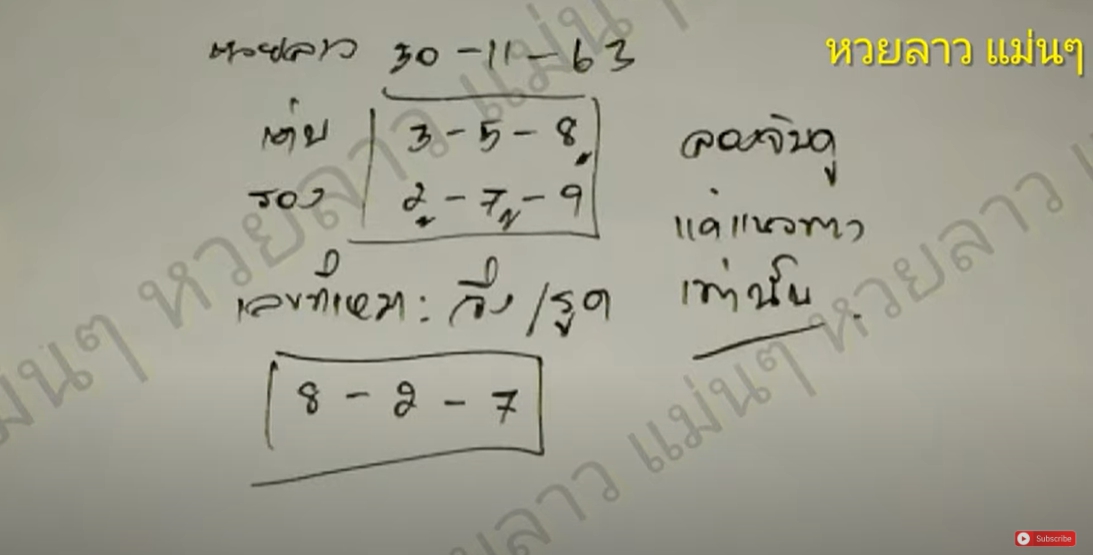 หวยลาว 30-11-63
หวยลาว แม่นๆ
เด่น 3-5-8
รอง 2-7-9
ลองจับดู
แค่แนวทาง
เท่านั้น
เลขที่เหมา: วิ่ง/รูด
8-2-7
หวยลาว แม่นๆ
หวยลาว แม่นๆ
Subscribe